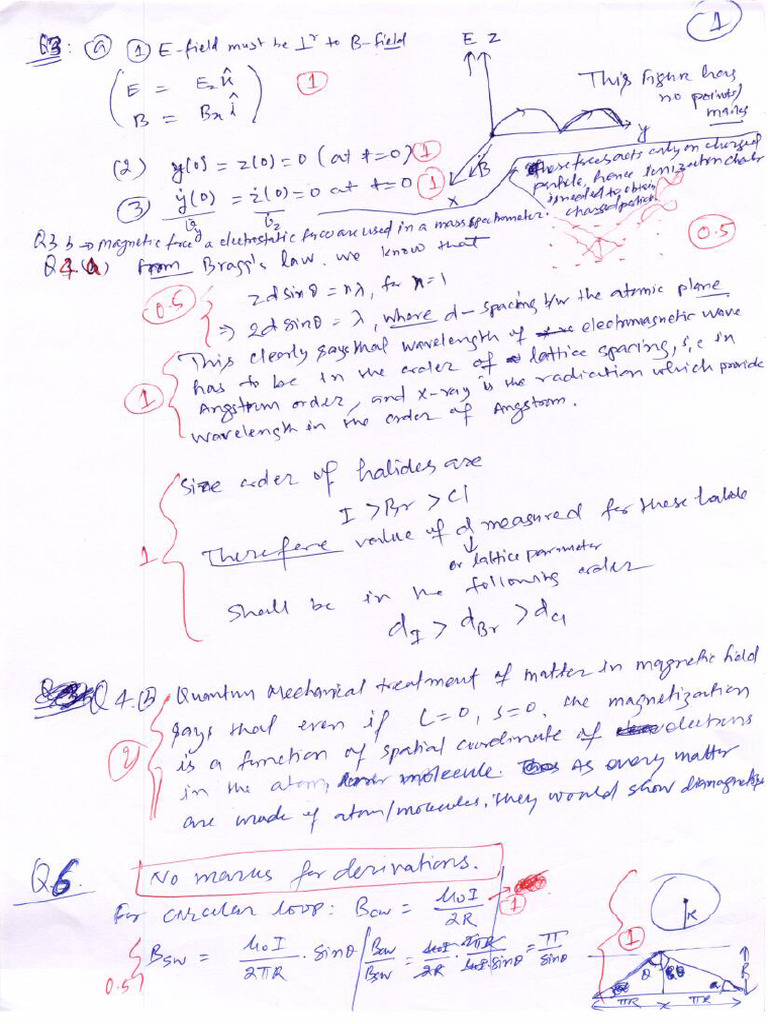 1
Q3: (a) (1) E-field must be Ir to B-field
E = Ez k̂
B = Bx î
1
E Z
y
x
B
This figure has
no points/
marks
(2) y(0) = z(0) = 0 (at t=0) 1
(3) ẏ(0) = ż(0) = 0 at t=0 1
These forces acts only on charged
particle, hence ionization chamber
is needed to obtain
charged particle
Q3 b → magnetic force & electrostatic force are used in a mass spectrometer.
0.5
Q4 (a) From Bragg's law, we know that
2d sinθ = nλ, for n=1
0.5
⇒ 2d sinθ = λ, where d - spacing b/w the atomic plane
This clearly says that wavelength of electromagnetic wave
has to be in the order of lattice spacing, i.e in
1
Angstrum order, and x-ray is the radiation which provide
wavelength in the order of Angstrom.
Size order of halides are
I > Br > Cl
1
Therefore value of d measured for these halide
or lattice parameter
shall be in the following order
dI > dBr > dCl
Q4. (b) Quantum Mechanical treatment of matter in magnetic field
says that even if L=0, S=0, the magnetization
2
is a function of spatial coordinate of electrons
in the atom, molecule. As every matter
are made of atom/molecules, they would show diamagnetism
Q6. No marks for derivations.
For circular loop: Bcw = μ0I / 2R
1
Bsw = μ0I / 2πR · sinθ
Bcw / Bsw = μ0I / 2R · 2πR / μ0I sinθ = π / sinθ
0.5
1
R
θ
R
πR x πR